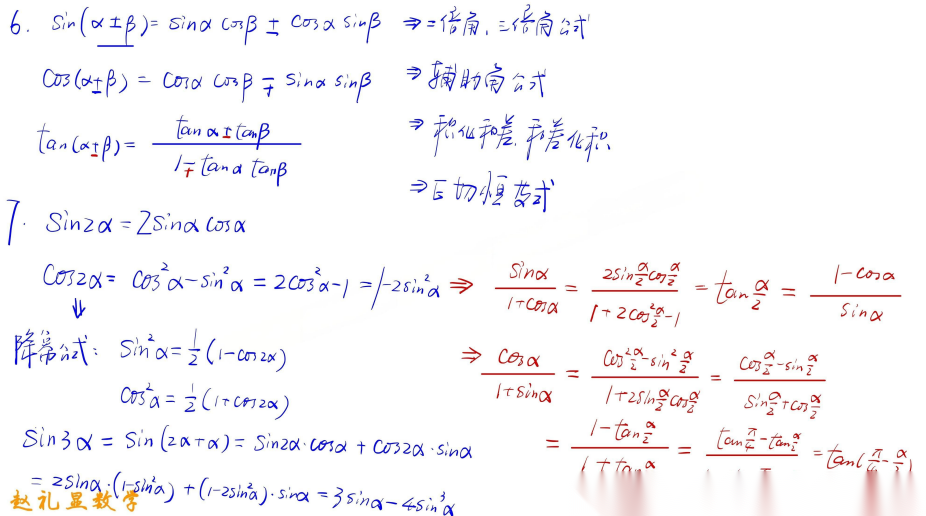 6. sin(α±β)= sinα cosβ ± cosα sinβ ⇒ 二倍角, 三倍角公式
cos(α±β) = cosα cosβ ∓ sinα sinβ ⇒ 辅助角公式
tan(α±β) = (tanα±tanβ)/(1∓tanα tanβ) ⇒ 积化和差, 和差化积
⇒ 正切恒等式
7. sin2α = 2sinα cosα
cos2α = cos²α-sin²α = 2cos²α-1 = 1-2sin²α ⇒ sinα/(1+cosα) = (2sin(α/2)cos(α/2))/(1+2cos²(α/2)-1) = tan(α/2) = (1-cosα)/sinα
↓
降幂公式: sin²α = 1/2(1-cos2α)
cos²α = 1/2(1+cos2α)
⇒ cosα/(1+sinα) = (cos²(α/2)-sin²(α/2))/(1+2sin(α/2)cos(α/2)) = (cos(α/2)-sin(α/2))/(sin(α/2)+cos(α/2))
sin3α = sin(2α+α) = sin2α·cosα + cos2α·sinα
= 2sinα·(1-sin²α) + (1-2sin²α)·sinα = 3sinα-4sin³α
= (1-tan(α/2))/(1+tan α = (tan(π/4)-tan(α/2)) = tan(π/4-α/2)
赵礼显数学